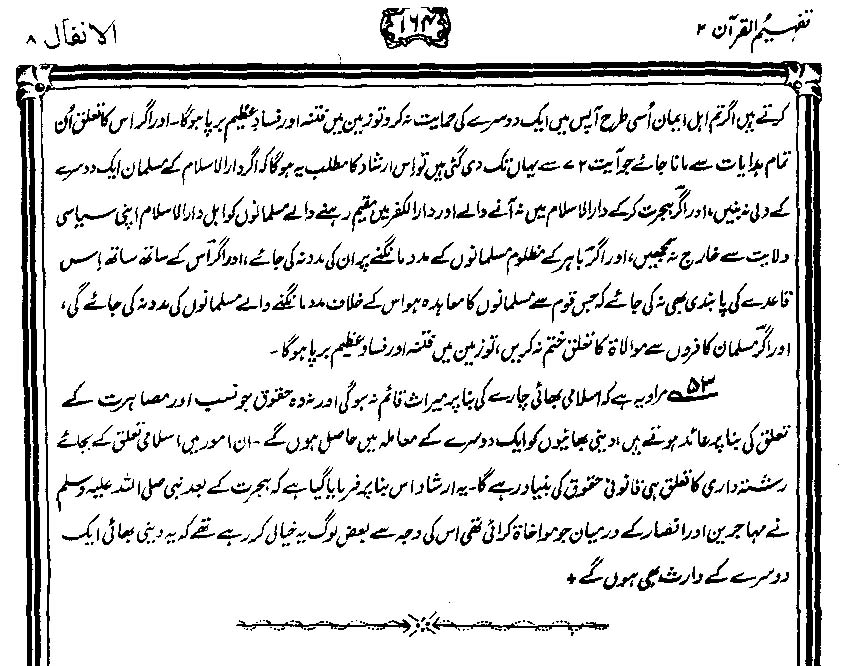 تفہیم القرآن ۲
۱۶۴
الانفال ۸
کرتے ہیں اگر تم اہل ایمان اُسی طرح آپس میں ایک دوسرے کی حمایت نہ کرو تو زمین میں فتنہ اور فسادِ عظیم برپا ہوگا۔ اور اگر اس کا تعلق اُن
تمام ہدایات سے مانا جائے جو آیت ۷۲ سے یہاں تک دی گئی ہیں تو اِس ارشاد کا مطلب یہ ہوگا کہ اگر دارالاسلام کے مسلمان ایک دوسرے
کے ولی نہ بنیں، اور اگر ہجرت کر کے دارالاسلام میں نہ آنے والے اور دارالکفر میں مقیم رہنے والے مسلمانوں کو اہل دارالاسلام اپنی سیاسی
ولایت سے خارج نہ سمجھیں، اور اگر باہر کے مظلوم مسلمانوں کے مدد مانگنے پر ان کی مدد نہ کی جائے، اور اگر اس کے ساتھ ساتھ اِس
قاعدے کی پابندی بھی نہ کی جائے کہ جس قوم سے مسلمانوں کا معاہدہ ہو اس کے خلاف مدد مانگنے والے مسلمانوں کی مدد نہ کی جائے گی،
اور اگر مسلمان کافروں سے موالاۃ کا تعلق ختم نہ کریں، تو زمین میں فتنہ اور فسادِ عظیم برپا ہوگا۔
۵۳ مراد یہ ہے کہ اسلامی بھائی چارے کی بنا پر میراث قائم نہ ہوگی اور نہ وہ حقوق جو نسب اور مصاہرت کے
تعلق کی بنا پر عائد ہوتے ہیں، دینی بھائیوں کو ایک دوسرے کے معاملہ میں حاصل ہوں گے۔ ان امور میں اسلامی تعلق کے بجائے
رشتہ داری کا تعلق ہی قانونی حقوق کی بنیاد رہے گا۔ یہ ارشاد اس بنا پر فرمایا گیا ہے کہ ہجرت کے بعد نبی صلی اللہ علیہ وسلم
نے مہاجرین اور انصار کے درمیان جو مواخاۃ کرائی تھی اس کی وجہ سے بعض لوگ یہ خیال کر رہے تھے کہ یہ دینی بھائی ایک
دوسرے کے وارث بھی ہوں گے ٭